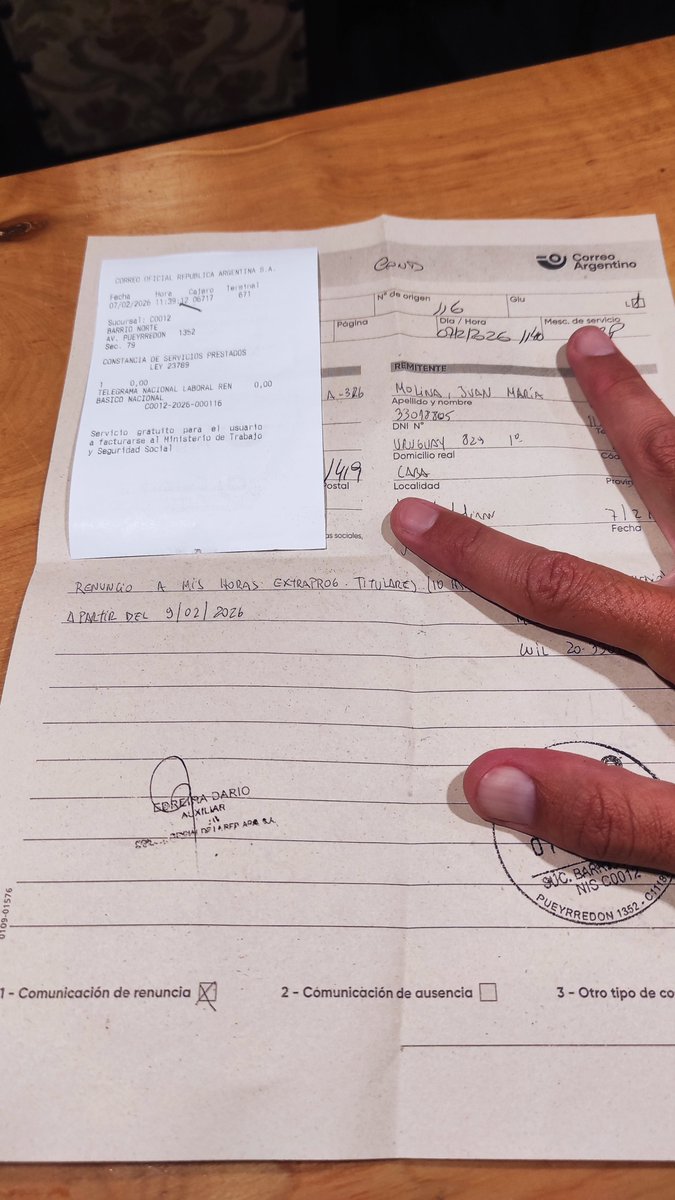 CORREO OFICIAL REPUBLICA ARGENTINA S.A.
Fecha Hora Cajero Terminal
07/02/2026 11:39:12 06717 671
Sucursal: C0012
BARRIO NORTE
AV. PUEYRREDON 1352
Sec. 79
CONSTANCIA DE SERVICIOS PRESTADOS
LEY 23789
1 0,00 0,00
TELEGRAMA NACIONAL LABORAL REN
BASICO NACIONAL
C0012-2026-000116
Servicio gratuito para el usuario
a facturarse al Ministerio de Trabajo
y Seguridad Social
COND
Correo
Argentino
Nº de origen 116 Glu
Página
Día / Hora
07/2/2026 1140
Mesc. de servicio
REMITENTE
MOLINA, JUAN MARÍA
Apellido y nombre
33018805
DNI Nº
URUGUAY 829 1º
Domicilio real
CABA
Localidad
Fecha
1419
RENUNCIO A MIS HORAS EXTRAPROG. TITULARES
A PARTIR DEL 9/02/2026
EDREIRA DARIO
AUXILIAR
NIS C0012
PUEYRREDON 1352 -
0109-01576
1 - Comunicación de renuncia
2 - Comunicación de ausencia
3 - Otro tipo de co